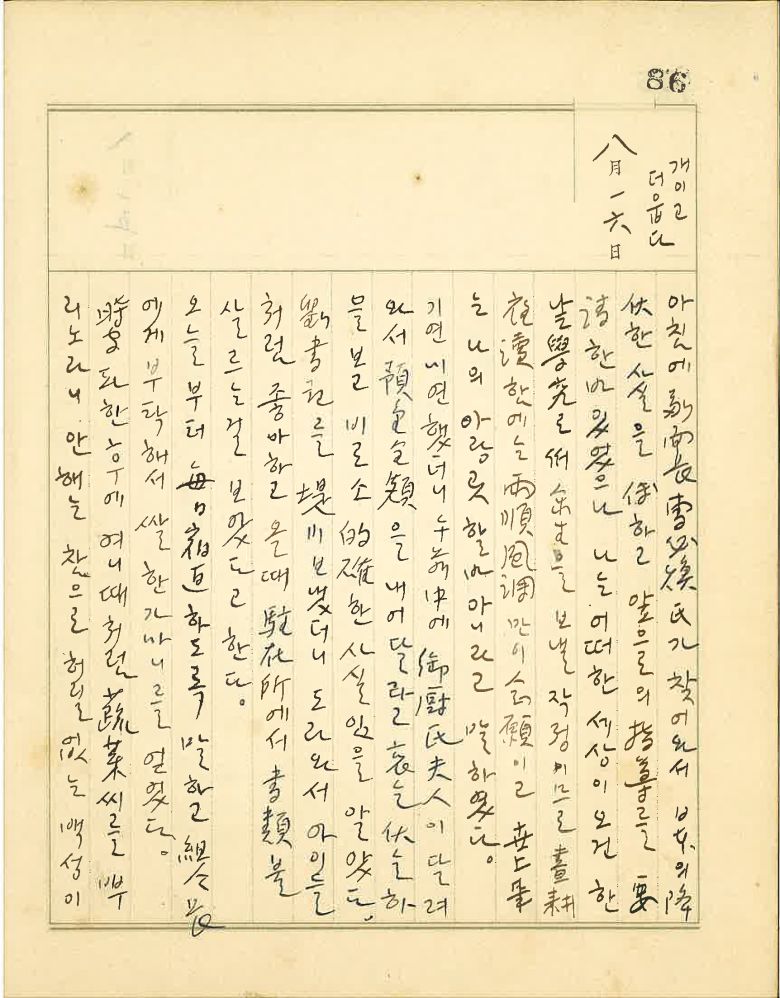 86
개이고
더웁다
八月一六日
아침에 副面長 雪必煥氏가 찾어와서 日本의 降
伏한 사실을 傳하고 앞으로의 指導를 要
請한바 있었으나 나는 어떠한 세상이 오건 한
낱 學究로서 余生을 보낼 작정이므로 晝耕
夜讀 한에는 雨順風調만이 念願이고 世上事
는 나의 아랑곳 할바 아니라고 말하였다。
기연미연 했더니 午前中에 御厨氏夫人이 달려
와서 預金全額을 내어달라고 哀訴伏乞하
믈 보고 비로소 的確한 사실임을 알았다。
劉書記를 堤川 보냈더니 도라와서 아이들
처럼 좋아하고 올때 駐在所에서 書類 불
살르는걸 보았다고 한다。
오늘부터 每日 宿直하도록 말하고 組合長
에게 부탁해서 쌀 한가마니를 얻었다。
時局 파한 후에 여니때처럼 蔬菜씨를 뿌
리노라니 안해는 참으로 허릴없는 백성이